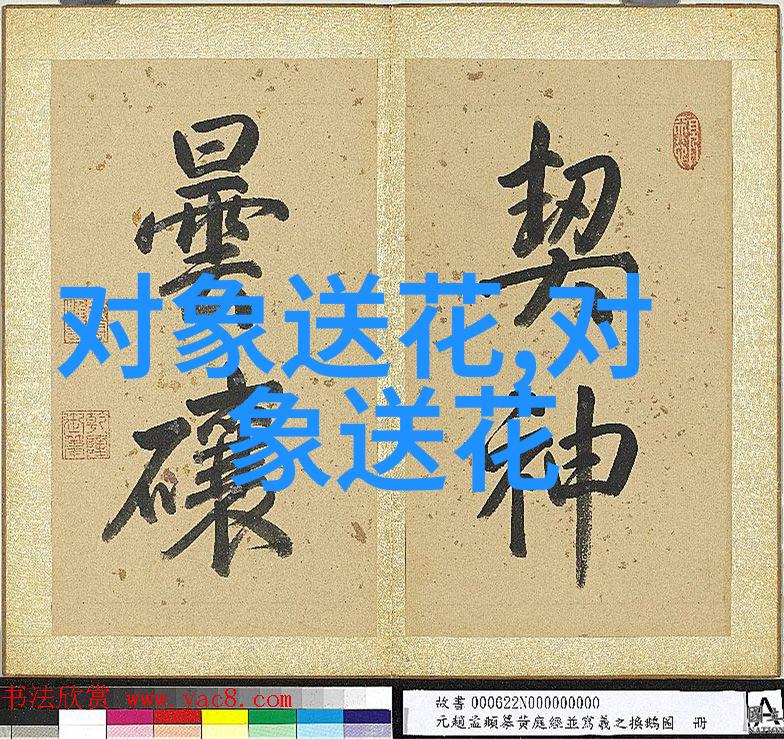 契神
曇
对象送花,对
象送花
书法欣赏 www.yac8.com
故書 000622N000000000
元趙孟頫摹黃庭經並寫羲之換鵝圖 冊